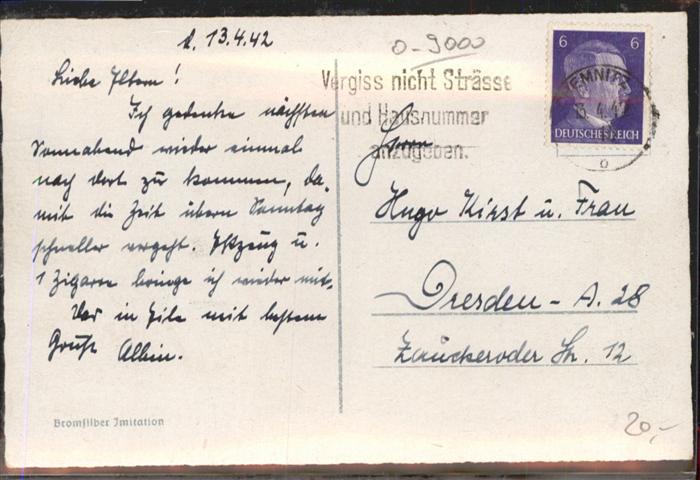 d. 13.4.42
Liebe Eltern!
Ich gedenke nächsten
Sonnabend wieder einmal
nach dort zu kommen, da-
mit die Zeit übern Sonntag
schneller vergeht. Eßzeug u.
1 Zigarre bringe ich wieder mit.
Nur in Eile mit bestem
Gruß Albin.
Bromsilber Imitation
0-9000
Vergiss nicht Strasse
und Hausnummer
anzugeben.
6 6
DEUTSCHES REICH
Herrn
Hugo Kirst u. Frau
Dresden - A. 28
Zauckeroder Str. 12
20,-